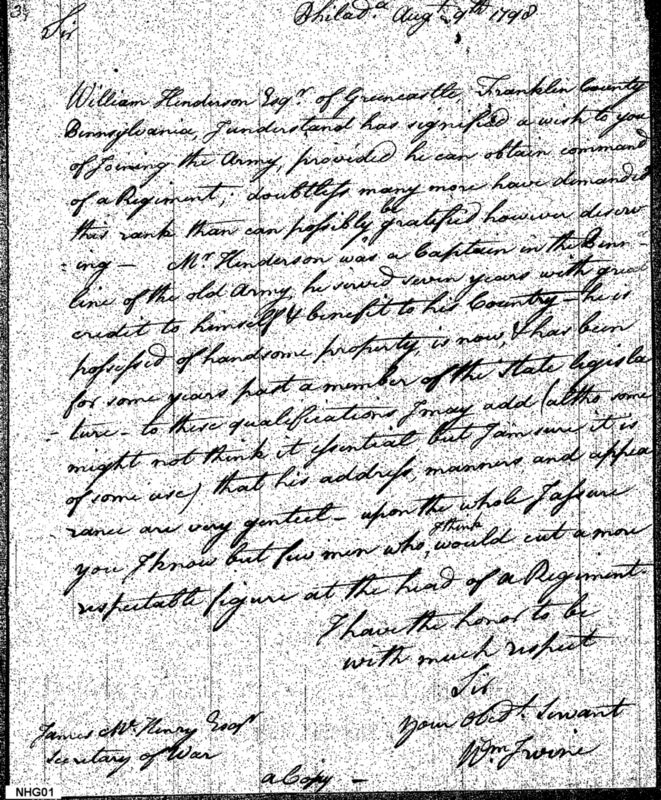 Philad.a Aug.t 29th 1798
Sir
William Henderson Esq.r of Greencastle, Franklin County
Pennsylvania, I understand has signified a wish to you
of Joining the Army, provided he can obtain command
of a Regiment, doubtless many more have demanded
this rank than can possibly be gratified, however deserv-
-ing — Mr Henderson was a Captain in the Penn.a
line of the old Army, he served seven years with great
credit to himself & benefit to his Country — he is
possessed of handsome property, is now, & has been
for some years past a member of the state legisla
-ture — to these qualifications I may add (altho some
might not think it essential but I am sure it is
of some use) that his address, manners and appea
rance are very genteel — upon the whole I assure
you I know but few men who, I think would cut a more
respectable figure at the head of a Regiment.
I have the honor to be
with much respect
Sir
Your Obed.t Servant
Wm Irvine
James McHenry Esq.r
Secretary of War
a Copy —
NHG01